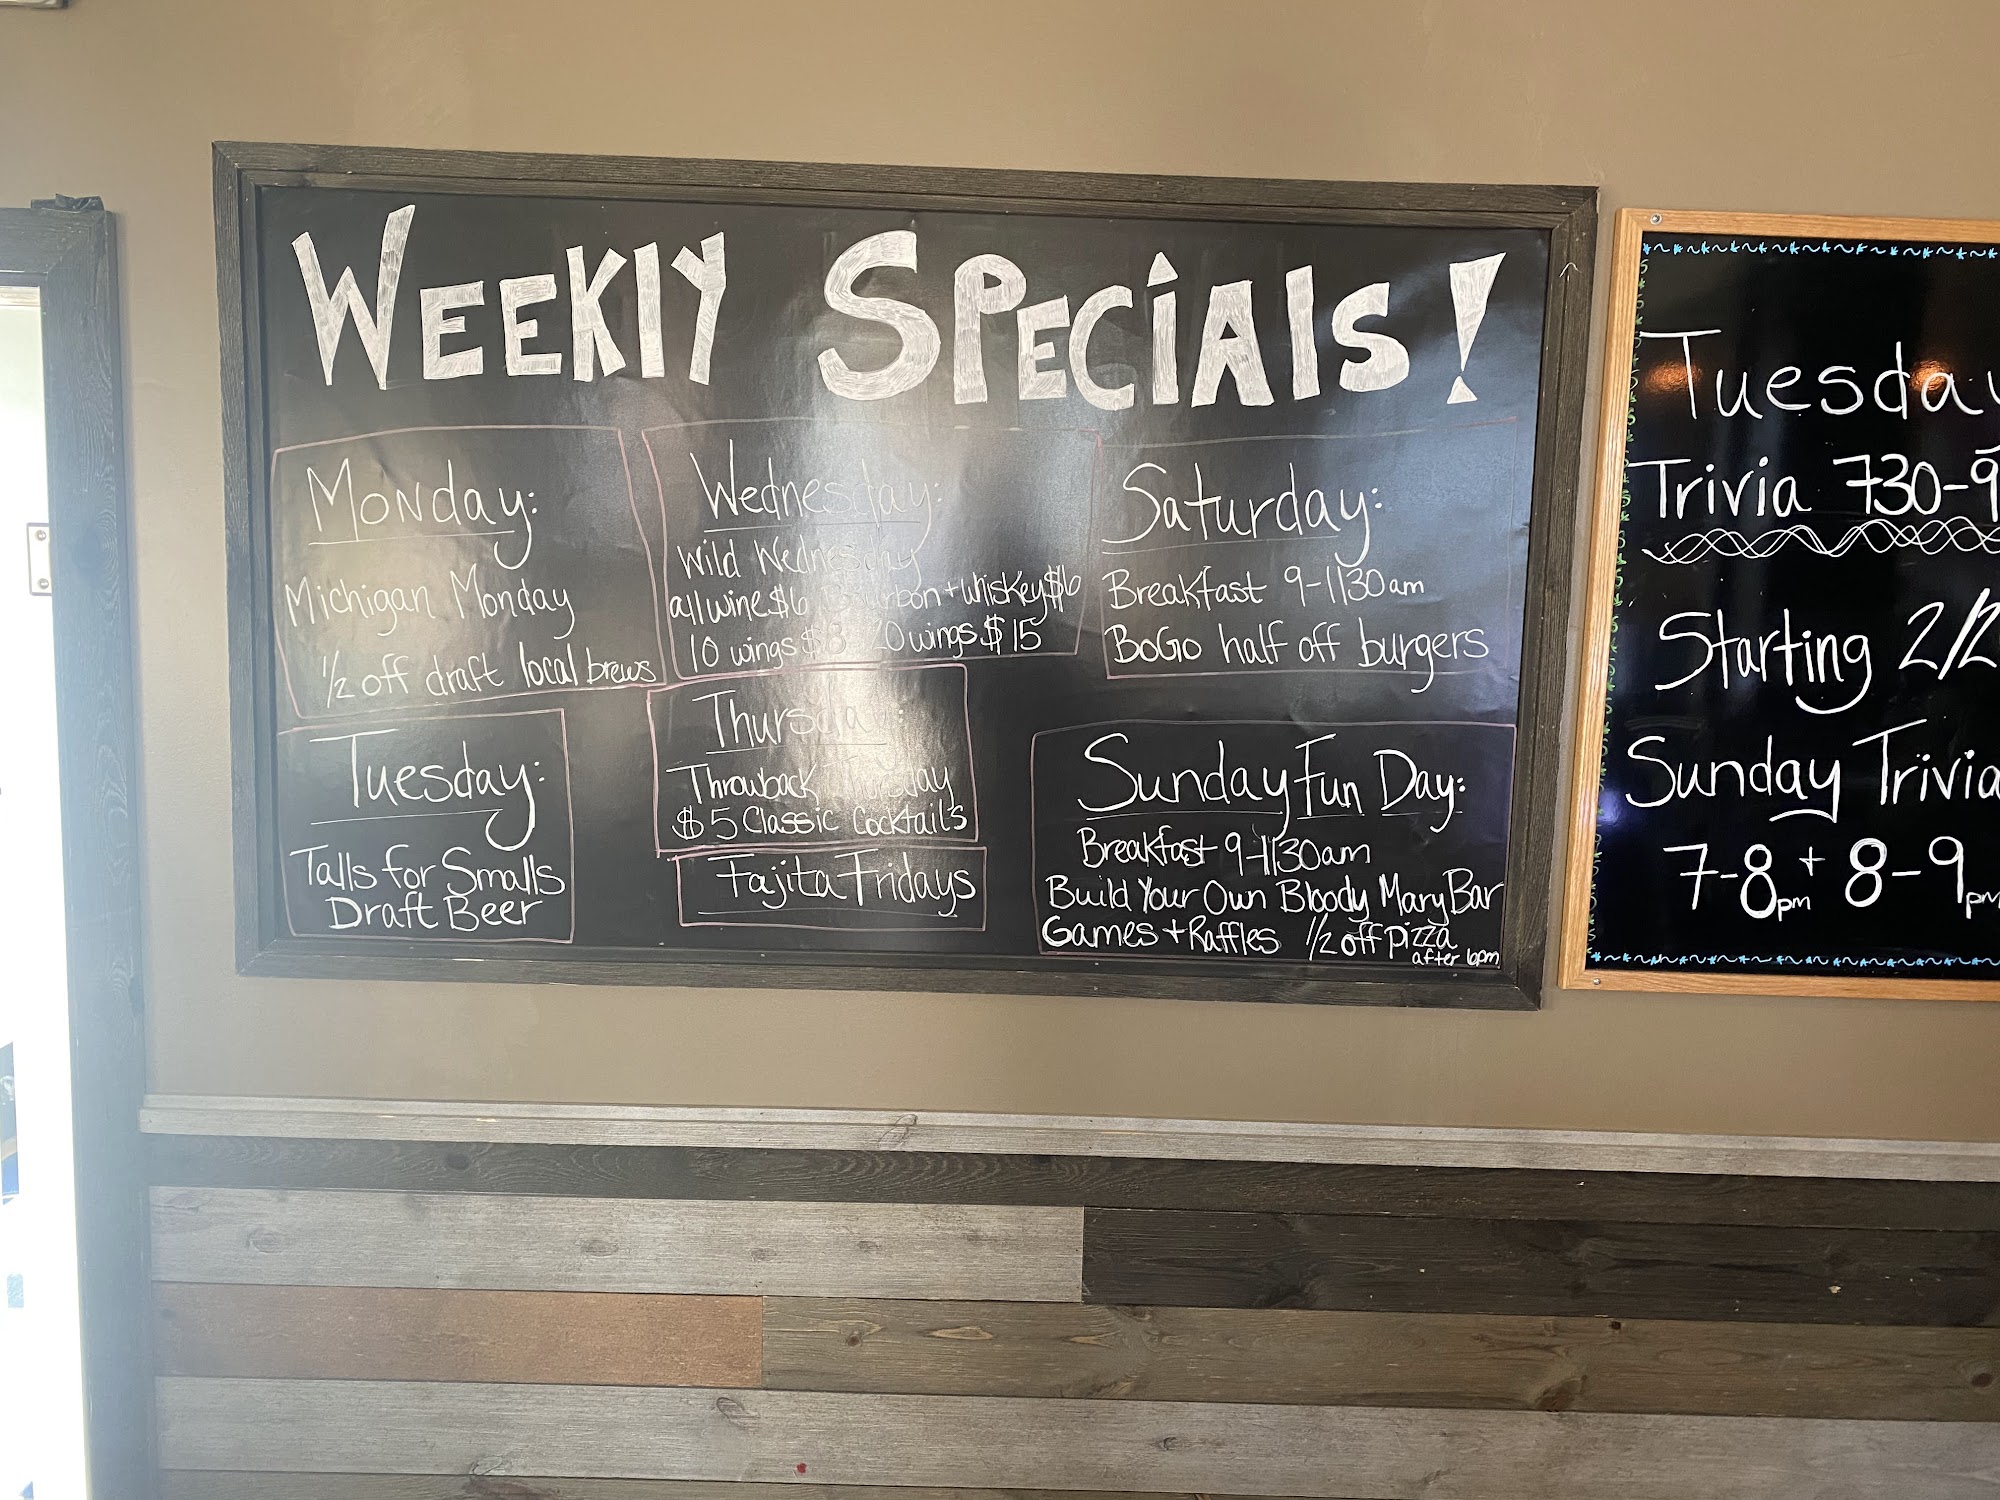 WEEKLY SPECIALS!
Monday:
Michigan Monday
1/2 off draft local brews
Tuesday:
Talls for Smalls
Draft Beer
Wednesday:
Wild Wednesday
all wine $6 Bourbon + whiskey $6
10 wings $8 20 wings $15
Thursday:
Throwback Thursday
$5 Classic Cocktails
Fajita Fridays
Saturday:
Breakfast 9-1130am
BoGo half off burgers
Sunday Fun Day:
Breakfast 9-1130am
Build Your Own Bloody Mary Bar
Games + Raffles 1/2 off pizza
after 6pm
Tuesday
Trivia 730-9
Starting 2/2
Sunday Trivia
7-8pm + 8-9pm